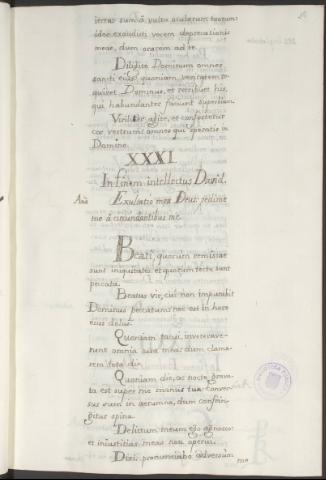 iectus sum à vultu oculorum tuorum:
ideo exaudisti vocem deprecationis
meae, dum orarem ad te.
Diligite Dominum omnes
sancti eius, quoniam veritatem re-
quiret Dominus, et retribuet his,
qui habundanter faciunt superbiam.
Viriliter agite, et confortetur
cor vestrum omnes qui speratis in
Domino.
XXXI.
In finem intellectus David.
Aña Exultatio mea Deus: redime
me à circundantibus me.
Beati, quorum remissae
sunt iniquitates: et quorum tecta sunt
peccata.
Beatus vir, cui non imputabit
Dominus peccatum: nec est in hore
eius dolus.
Quoniam tacui, inveterave-
runt omnia ossa mea: dum clama-
rem tota die.
Quoniam die, ac nocte grava-
ta est super me manus tua: conver-
sus sum in aerumna, dum confrin-
gitur spina.
Delictum meum ego agnosco:
et iniustitias meas non operui.
Dixi: pronunciabo adversum
me